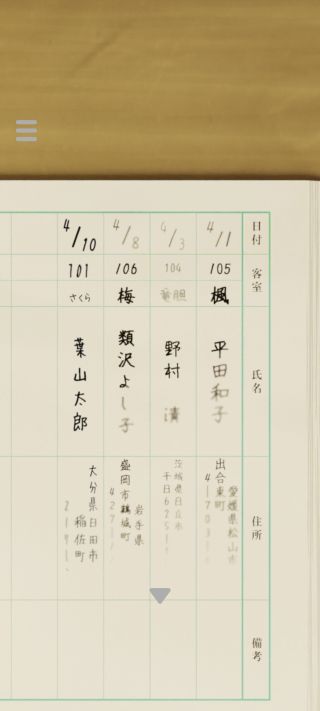 日付
客室
氏名
住所
備考
4/1
105
楓
平田和子
愛媛県松山市
出合東町
4170
4/3
104
竜胆
野村 清
茨城県日立市
千日625
4/8
106
梅
類沢よし子
岩手県
盛岡市鶴城町
427
4/10
101
さくら
葉山太郎
大分県日田市
稲佐町
2191